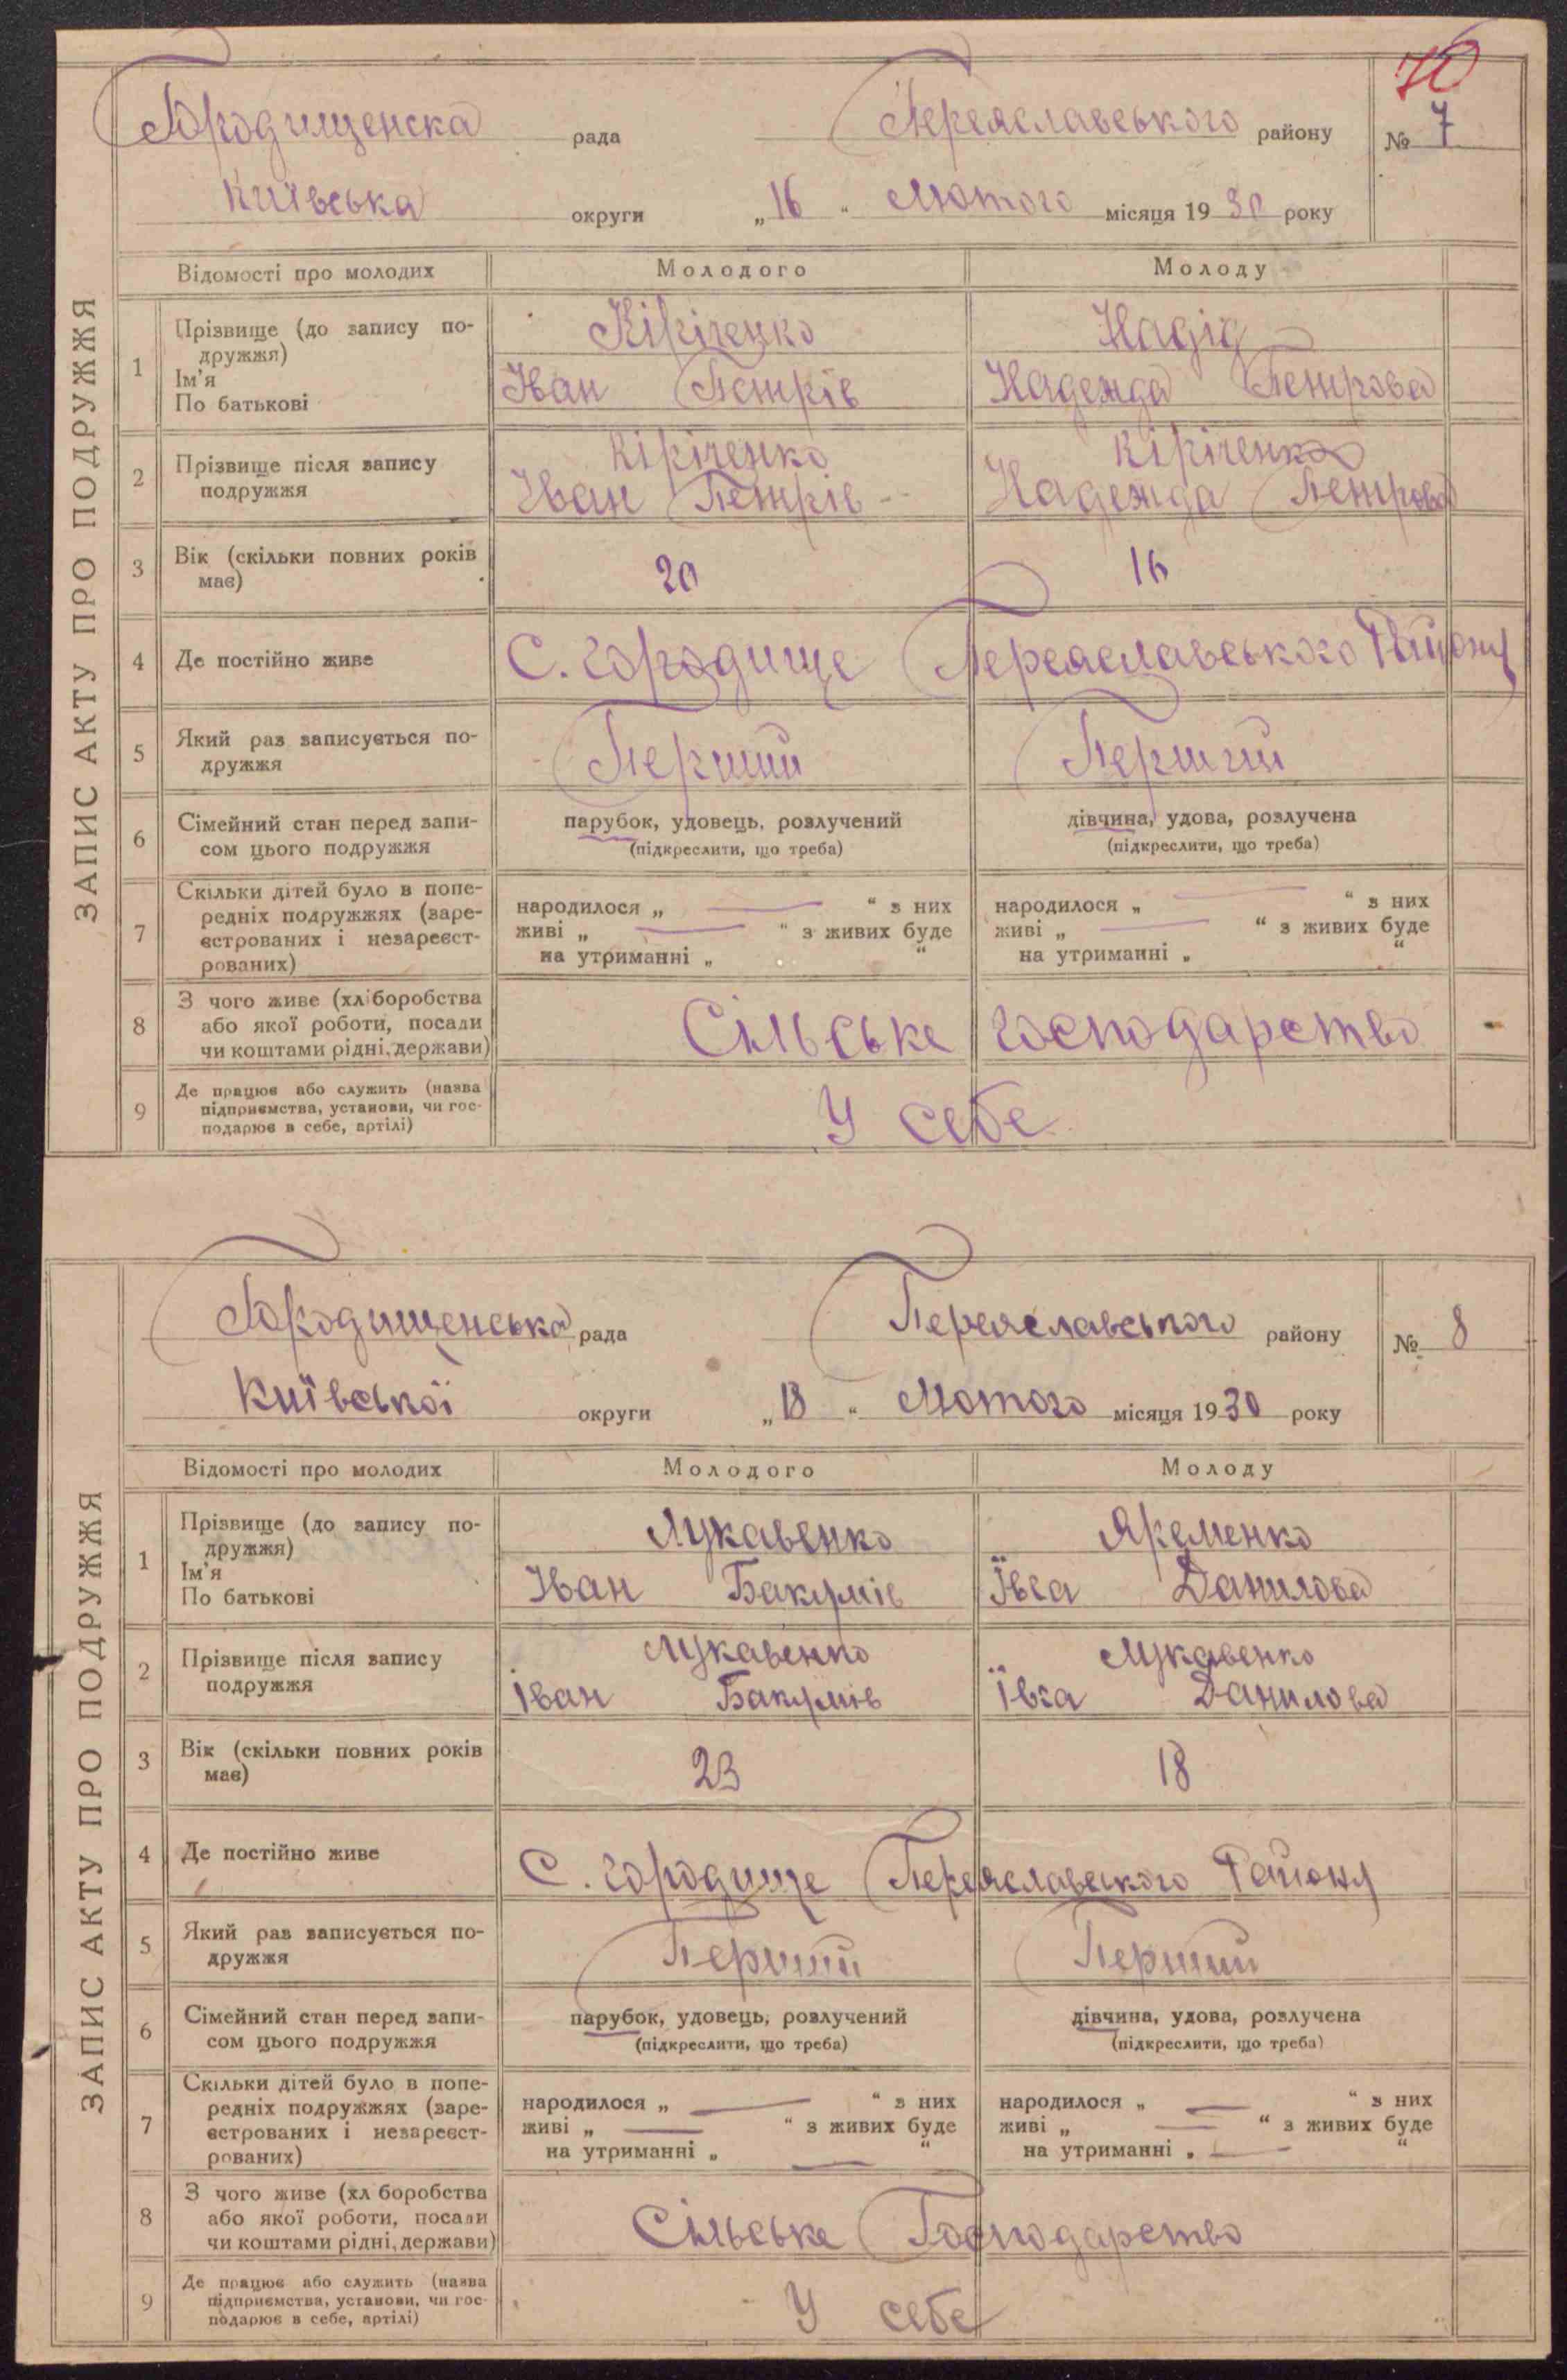 70
Городищенска рада Переяславського району № 7
Київська округи „16“ Лютого місяця 1930 року
ЗАПИС АКТУ ПРО ПОДРУЖЖЯ
Відомості про молодих Молодого Молоду
1 Прізвище (до запису по-дружжя) Ім'я По батькові
Кіріченко Надід
Іван Петрів Надежда Петрова
2 Прізвище після запису подружжя
Кіріченко Кіріченко
Іван Петрів Надежда Петрова
3 Вік (скільки повних років має) 20 16
4 Де постійно живе С. Городище Переяславського Району
5 Який раз записується по-дружжя Перший Перший
6 Сімейний стан перед запи-сом цього подружжя
парубок, удовець, розлучений дівчина, удова, розлучена
(підкреслити, що треба) (підкреслити, що треба)
7 Скільки дітей було в попе-редніх подружжях (заре-єстрованих і незареєст-рованих)
народилося „ — “ з них народилося „ — “ з них
живі „ — “ з живих буде живі „ — “ з живих буде
на утриманні „ “ на утриманні „ “
8 З чого живе (хліборобства або якої роботи, посади чи коштами рідні, держави) Сільське господарство
9 Де працює або служить (назва підприємства, установи, чи гос-подарює в себе, артілі) У себе
Городищенська рада Переяславського району № 8
Київської округи „18“ Лютого місяця 1930 року
ЗАПИС АКТУ ПРО ПОДРУЖЖЯ
Відомості про молодих Молодого Молоду
1 Прізвище (до запису по-дружжя) Ім'я По батькові
Лукавенко Яременко
Іван Бакумів Ївга Данилова
2 Прізвище після запису подружжя
Лукавенко Лукавенко
Іван Бакумів Ївга Данилова
3 Вік (скільки повних років має) 23 18
4 Де постійно живе С. Городище Переяславского Району
5 Який раз записується по-дружжя Перший Перший
6 Сімейний стан перед запи-сом цього подружжя
парубок, удовець, розлучений дівчина, удова, розлучена
(підкреслити, що треба) (підкреслити, що треба)
7 Скільки дітей було в попе-редніх подружжях (заре-єстрованих і незареєст-рованих)
народилося „ — “ з них народилося „ — “ з них
живі „ — “ з живих буде живі „ — “ з живих буде
на утриманні „ — “ на утриманні „ — “
8 З чого живе (хл боробства або якої роботи, посади чи коштами рідні, держави) Сільське Господарство
9 Де працює або служить (назва підприємства, установи, чи гос-подарює в себе, артілі) У себе